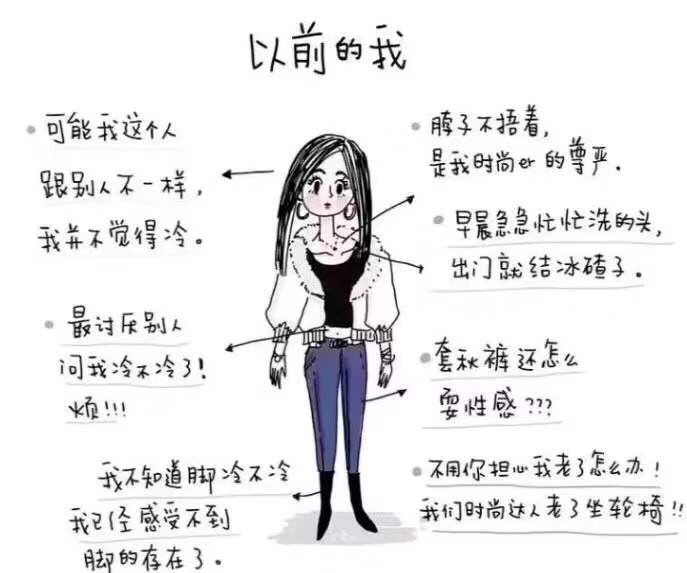 以前的我
可能我这个人
跟别人不一样，
我并不觉得冷。
最讨厌别人
问我冷不冷了！
烦！！！
我不知道脚冷不冷
我已经感受不到
脚的存在了。
脖子不捂着，
是我时尚er的尊严。
早晨急急忙忙洗的头，
出门就结冰碴子。
套秋裤还怎么
耍性感？？？
不用你担心我老了怎么办！
我们时尚达人老了坐轮椅！！